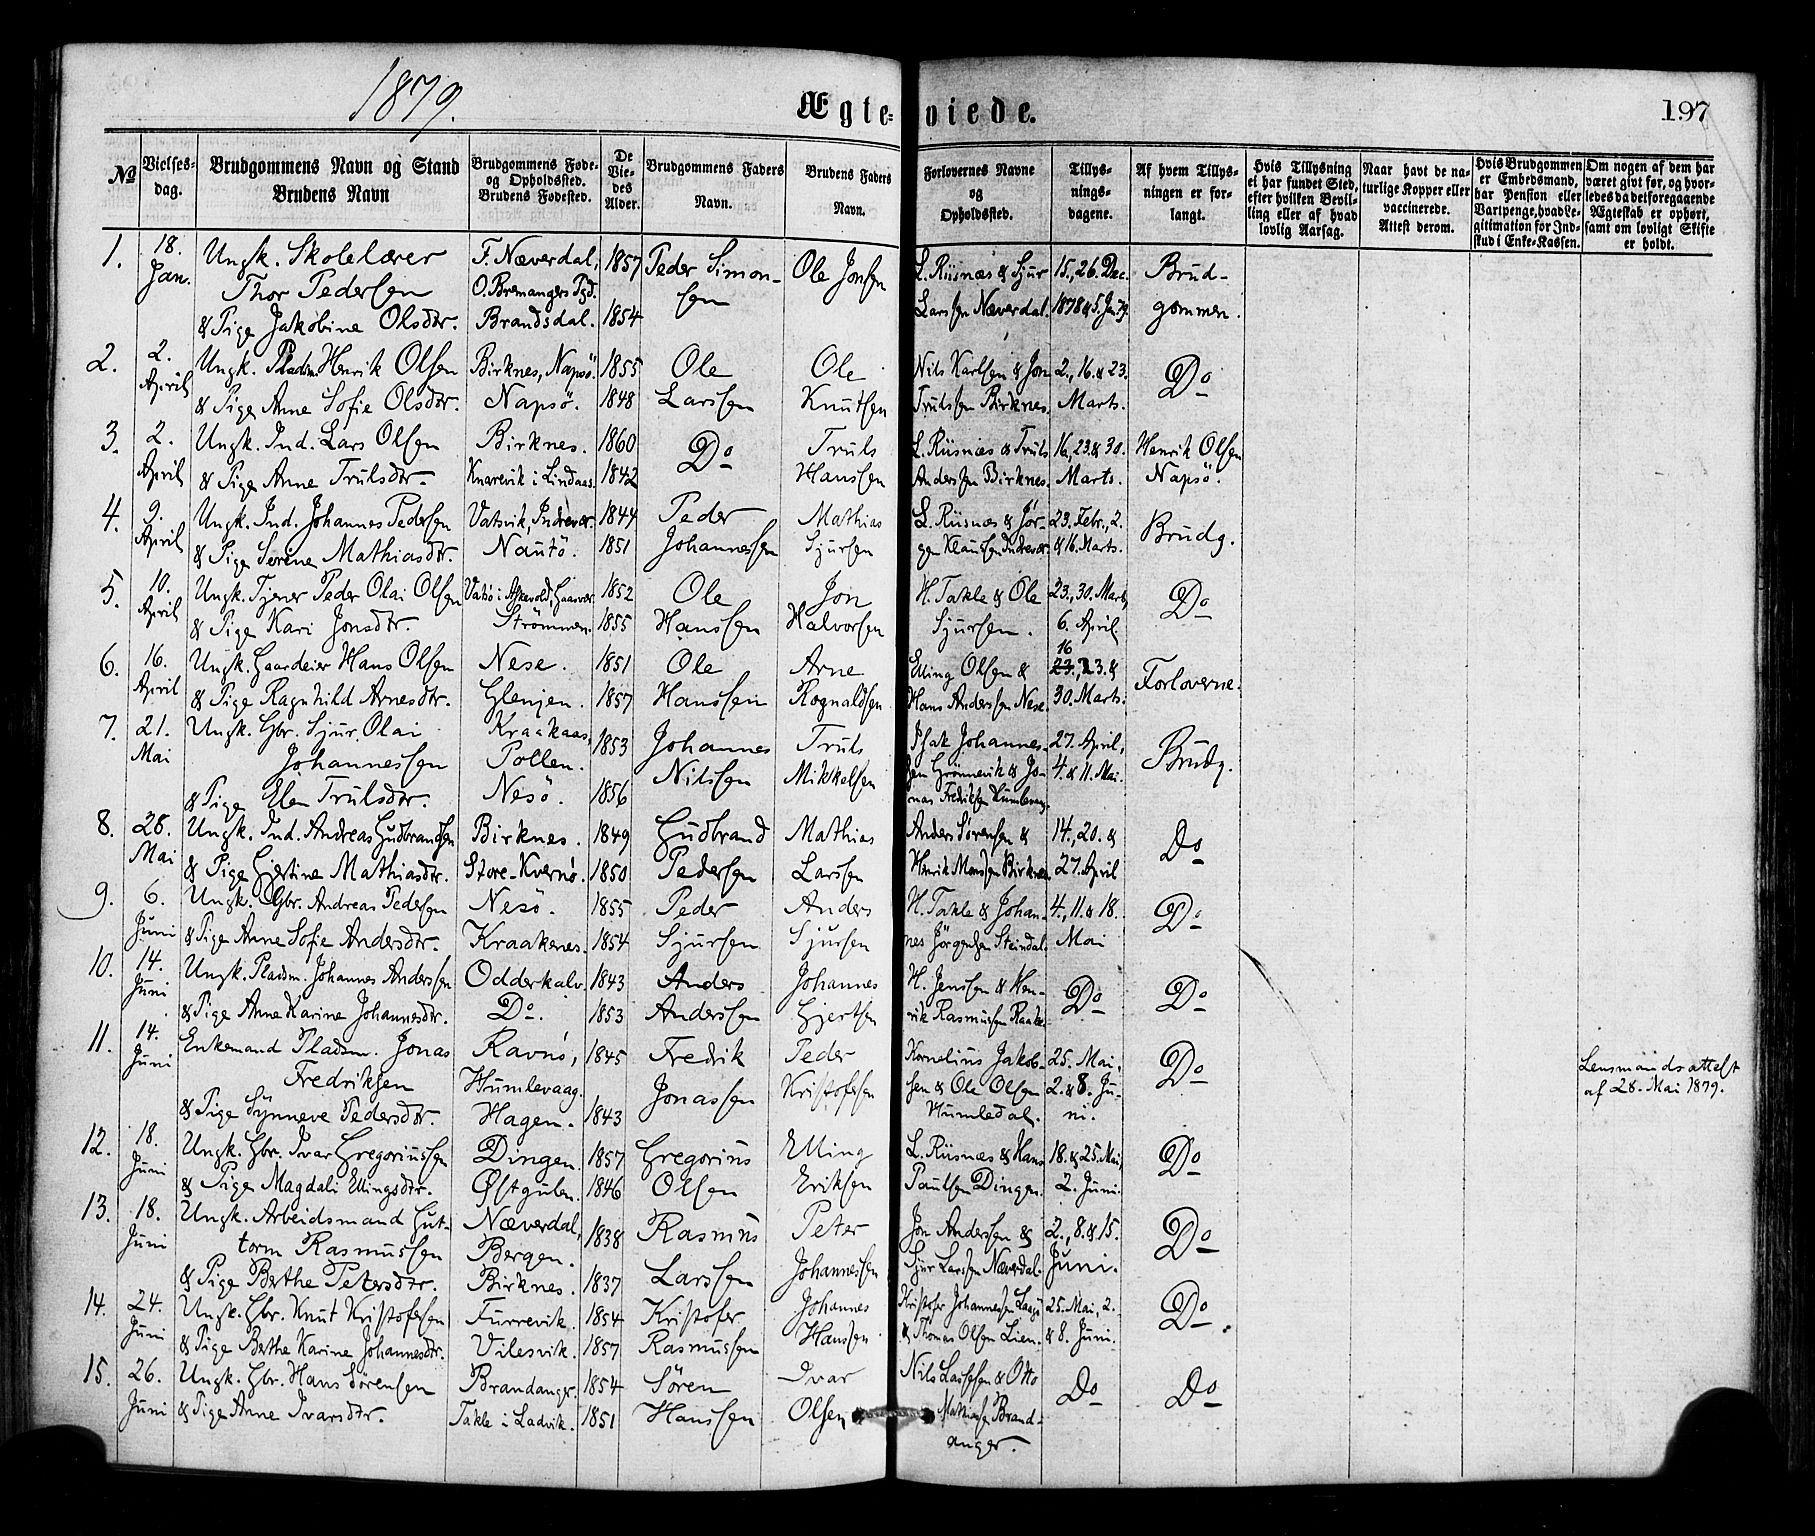 1879.
Ægte-viede.
197
№
Vielses-dag.
Brudgommens Navn og Stand
Brudens Navn
Brudgommens Føde- og Opholdssted.
Brudens Fødested.
De Viedes Alder.
Brudgommens Faders Navn.
Brudens Faders Navn.
Forlovernes Navne og Opholdssted.
Tillysningsdagene.
Af hvem Tillysningen er forlangt.
Hvis Tillysning ei har fundet Sted, efter hvilken Bevilling eller af hvad lovlig Aarsag.
Naar havt de naturlige Kopper eller vaccinerede. Attest derom.
Hvis Brudgommen er Embedsmand, har Pension eller Vartpenge, hvad Legitimation for Indskud i Enke-Kassen.
Om nogen af dem har været givt før, og hvorledes da det foregaaende Ægteskab er ophørt, samt om lovligt Skifte er holdt.
1. 18. Jan. Ungk. Skolelærer Thor Pedersen & Pige Jakobine Olsdtr. F. Næverdal, O. Bremangers Pgd. Brandsdal. 1857 1854 Peder Simonsen Ole Jonsen L. Riisnæs & Sjur Larssen Næverdal. 15., 26. Dec. 1878 & 5. Jan. 79. Brudgommen.
2. 2. April Ungk. Pladsm. Henrik Olsen & Pige Anne Sofie Olsdtr. Birknes, Napsö. Napsö. 1855 1848 Ole Larssen Ole Knutsen Nils Karlsen & Jon Trulssen Birknes. 2., 16. & 23. Marts. Do
3. 2. April Ungk. Ind. Lars Olsen & Pige Anne Trulsdtr. Birknes. Knarevik i Lindaas. 1860 1842 Do Truls Hanssen L. Riisnæs & Truls Anderssen Birknes. 16., 23. & 30. Marts. Henrik Olsen Napsö.
4. 9. April Ungk. Ind. Johannes Pedersen & Pige Serine Mathiasdtr. Vatsvik, Indrevær. Nautö. 1844 1851 Peder Johannessen Mathias Sjursen L. Riisnæs & Jörgen Klaussen Indrevær. 23. Febr., 2. & 16. Marts. Brudg.
5. 10. April Ungk. Tjener Peder Olai Olsen & Pige Kari Jonsdtr. Vatsö i Askevold, Gaasvær. Strömmen. 1852 1855 Ole Hanssen Jon Halvorsen H. Takle & Ole Sjursen. 23., 30. Marts, 6. April. Do
6. 16. April Ungk. Gaardeier Hans Olsen & Pige Ragnhild Arnesdtr. Nese. Glenjen. 1851 1857 Ole Hanssen Arne Rognaldsen Elling Olsen & Hans Anderssen Nese. 16 23. & 30. Marts. Forloverne.
7. 21. Mai Ungk. Gbr. Sjur Olai Johannessen & Pige Elen Trulsdtr. Kraakaas, Pollen. Nesö. 1853 1856 Johannes Nilssen Truls Mikkelsen Isak Johannessen Grönnevik & Jonas Fredriksen Humlevaag. 27. April, 4. & 11. Mai. Brudg.
8. 28. Mai Ungk. Ind. Andreas Gudbrandsen & Pige Gjertine Mathiasdtr. Birknes. Store-Kvernö. 1849 1850 Gudbrand Pedersen Mathias Larssen Anders Sörensen & Henrik Monssen Birknes. 14., 20. & 27. April Do
9. 6. Juni Ungk. Gbr. Andreas Pedersen & Pige Anne Sofie Andersdtr. Nesö. Kraakenes. 1855 1854 Peder Sjursen Anders Sjursen H. Takle & Johannes Jörgensen Steindal. 4., 11. & 18. Mai Do
10. 14. Juni Ungk. Pladsm. Johannes Anderssen & Pige Anne Karine Johannesdtr. Odderkalv. Do. 1843 1853 Anders Anderssen Johannes Gjertsen H. Jenssen & Henrik Rasmussen Do Do
11. 14. Juni Enkemand Pladsm. Jonas Fredriksen & Pige Synneve Pedersdtr. Ravnö, Humlevaag. Hagen. 1845 1843 Fredrik Jonassen Peder Kristofersen Kornelius Jakobsen & Ole Olsen Humledal. 25. Mai, 2. & 8. Juni. Do Lensmandsattest af 28. Mai 1879.
12. 18. Juni Ungk. Gbr. Ivar Gregoriussen & Pige Magdali Ellingsdtr. Dingen. Østgulen. 1857 1846 Gregorius Olsen Elling Eriksen L. Riisnæs & Hans Paulsen Dingen. 18. & 25. Mai, 2. Juni. Do
13. 18. Juni Ungk. Arbeidsmand Guttorm Rasmussen & Pige Berthe Petersdtr. Næverdal, Bergen. Birknes. 1838 1837 Rasmus Larssen Peter Johannessen Jon Anderssen & Sjur Larssen Næverdal. 2., 8. & 15. Juni. Do
14. 24. Juni Ungk. Gbr. Knut Kristofersen & Pige Berthe Karine Johannesdtr. Furrevik. Vilesvik. 1854 1857 Kristofer Rasmussen Johannes Hanssen Kristofer Johannessen & Thomas Olsen Lien. 25. Mai, 2. & 8. Juni. Do
15. 26. Juni Ungk. Gbr. Hans Sörensen & Pige Anne Ivarsdtr. Brandanger. Takle i Ladvik. 1854 1851 Sören Hanssen Ivar Olsen Nils Lassesen & Otto Mathiasen Brandanger. Do Do